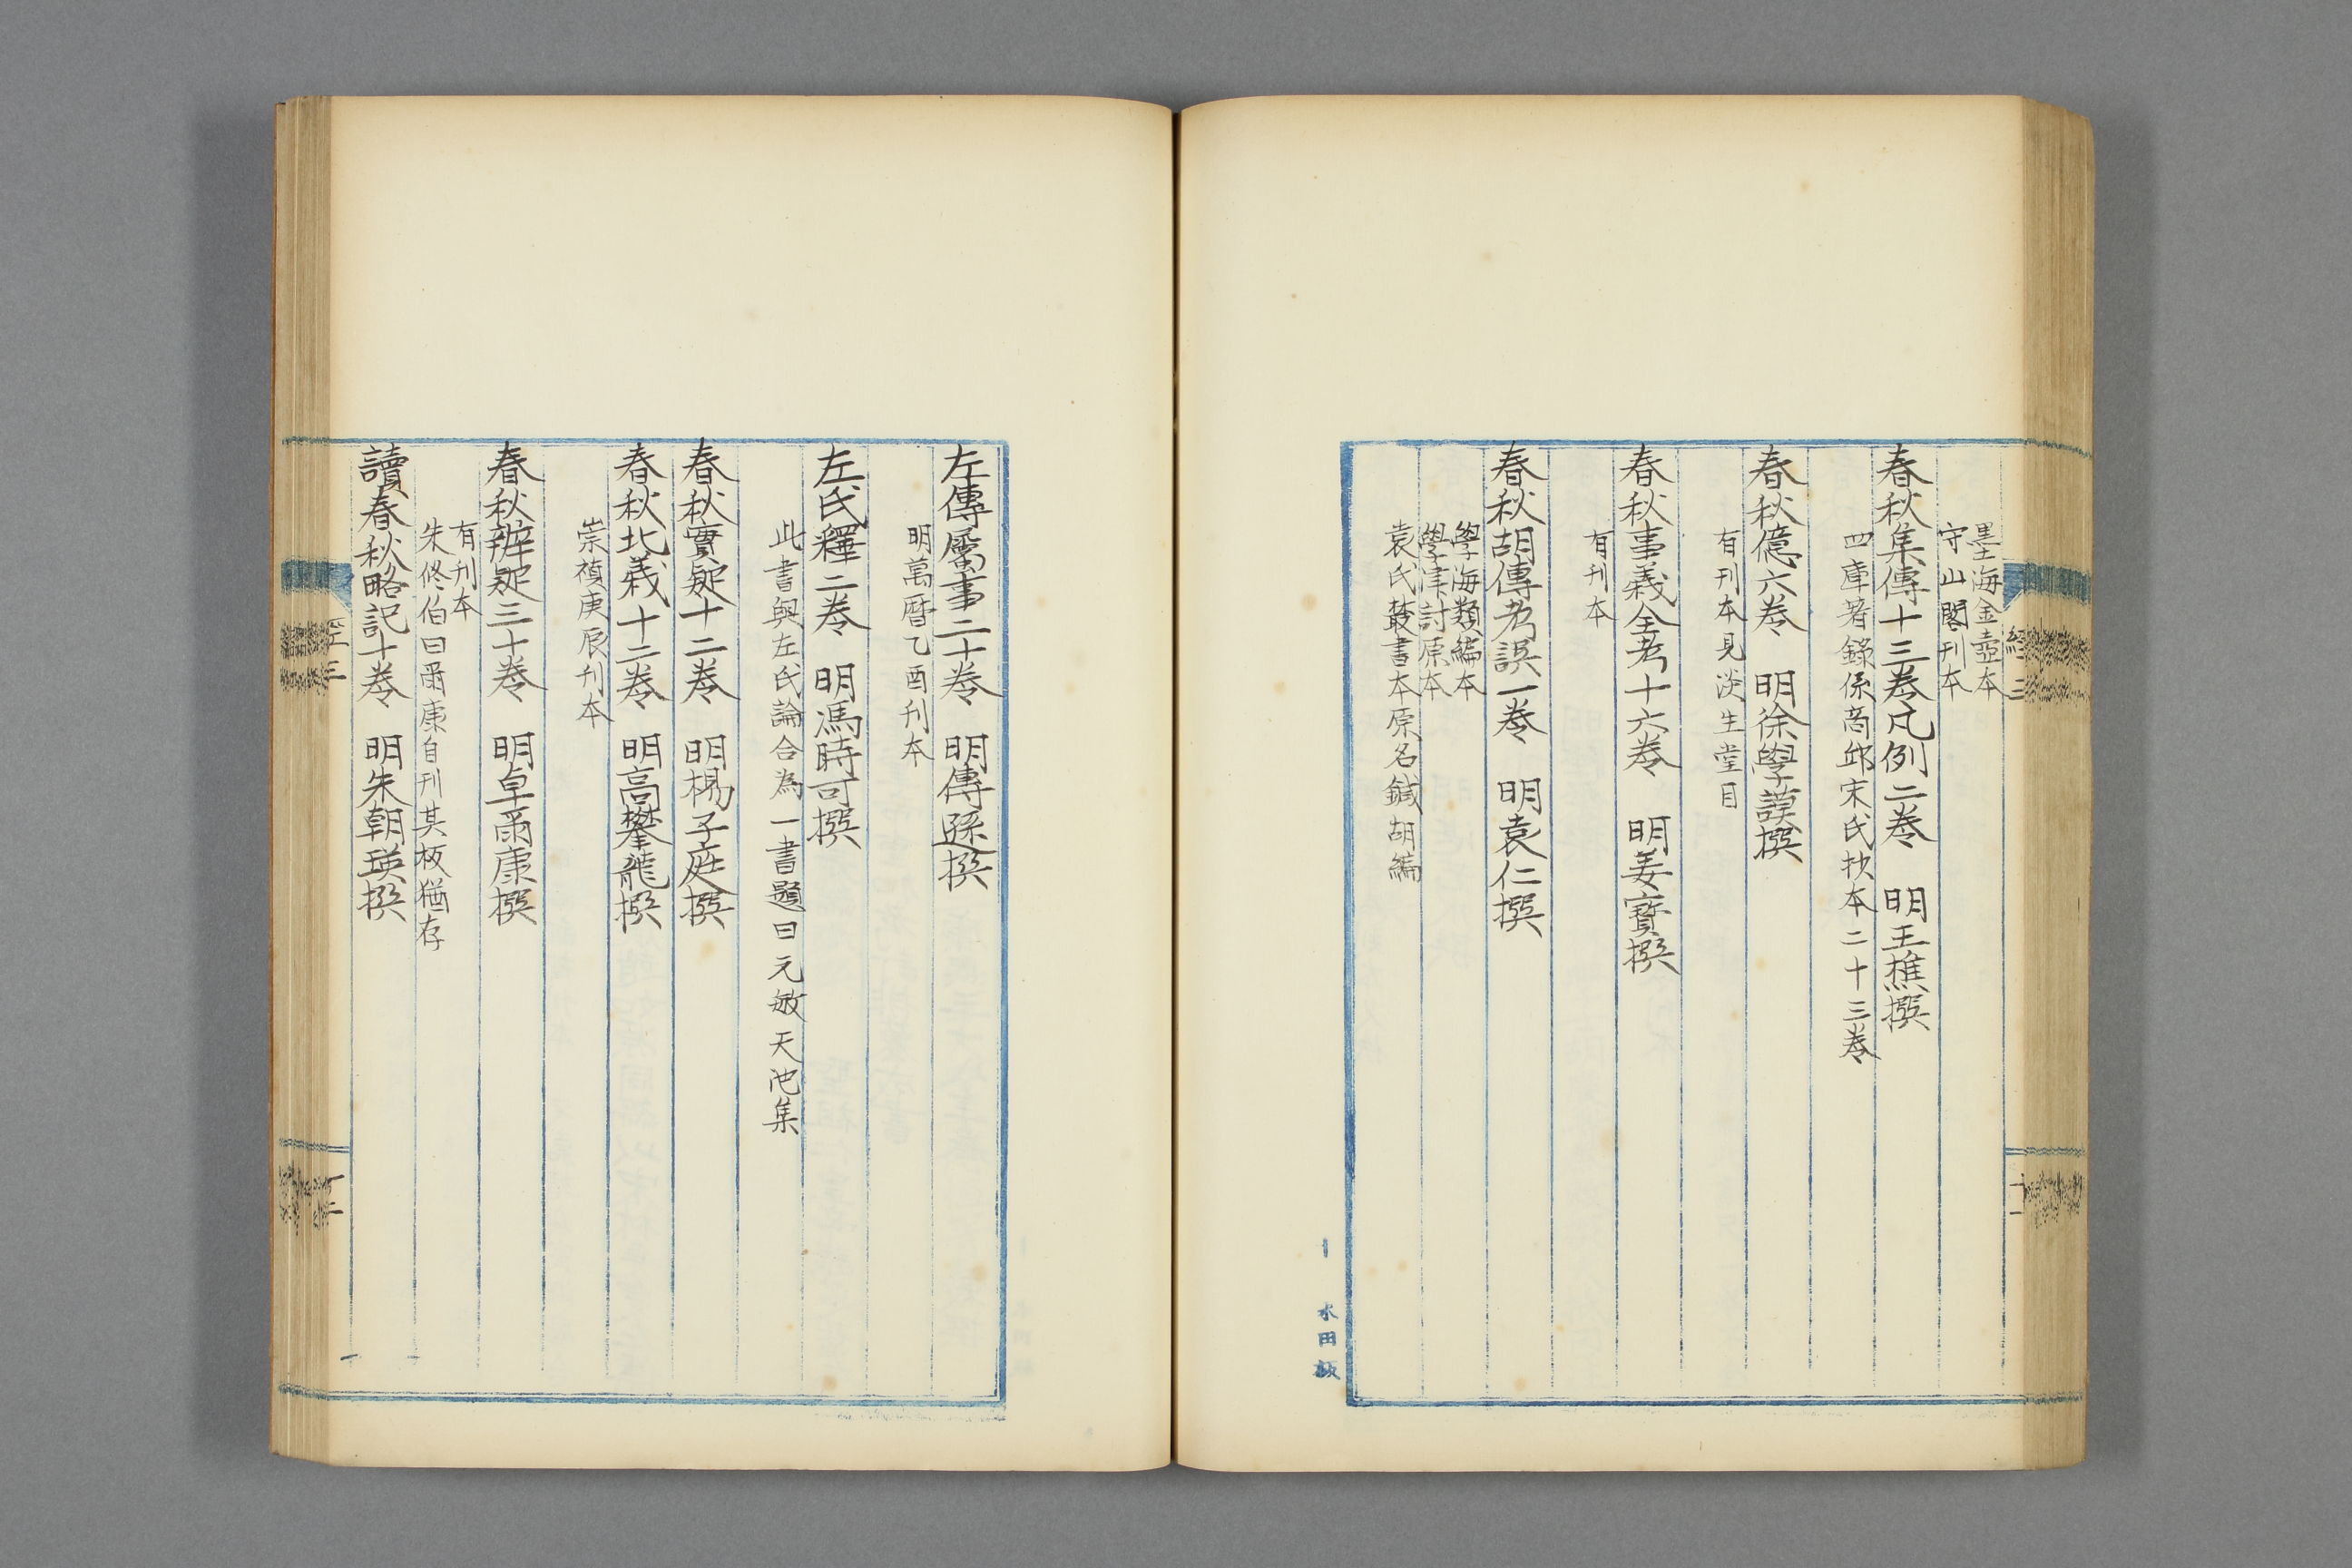 墨海金壺本
守山閣刊本
春秋集傳十三卷凡例二卷　明王樵撰
四庫著錄係商邱宋氏抄本二十三卷
春秋億六卷　明徐學謨撰
有刊本見淡生堂目
春秋事義全考十六卷　明姜寶撰
有刊本
春秋胡傳考誤一卷　明袁仁撰
學海類編本
學津討原本
袁氏叢書本原名鍼胡編
左傳屬事二十卷　明傅遜撰
明萬曆乙酉刊本
左氏釋二卷　明馮時可撰
此書與左氏論合為一書題曰元敏天池集
春秋實疑十二卷　明楊子庭撰
春秋孔義十二卷　明高攀龍撰
崇禎庚辰刊本
春秋辨疑三十卷　明卓爾康撰
有刊本
朱修伯曰爾康自刊其板猶存
讀春秋略記十卷　明朱朝瑛撰
經二
十一
水田板